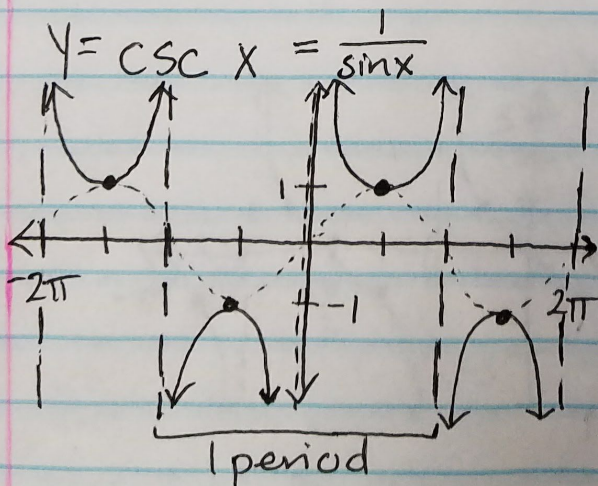 y = csc x = 1/sinx
1
-2π
-1
2π
1 period